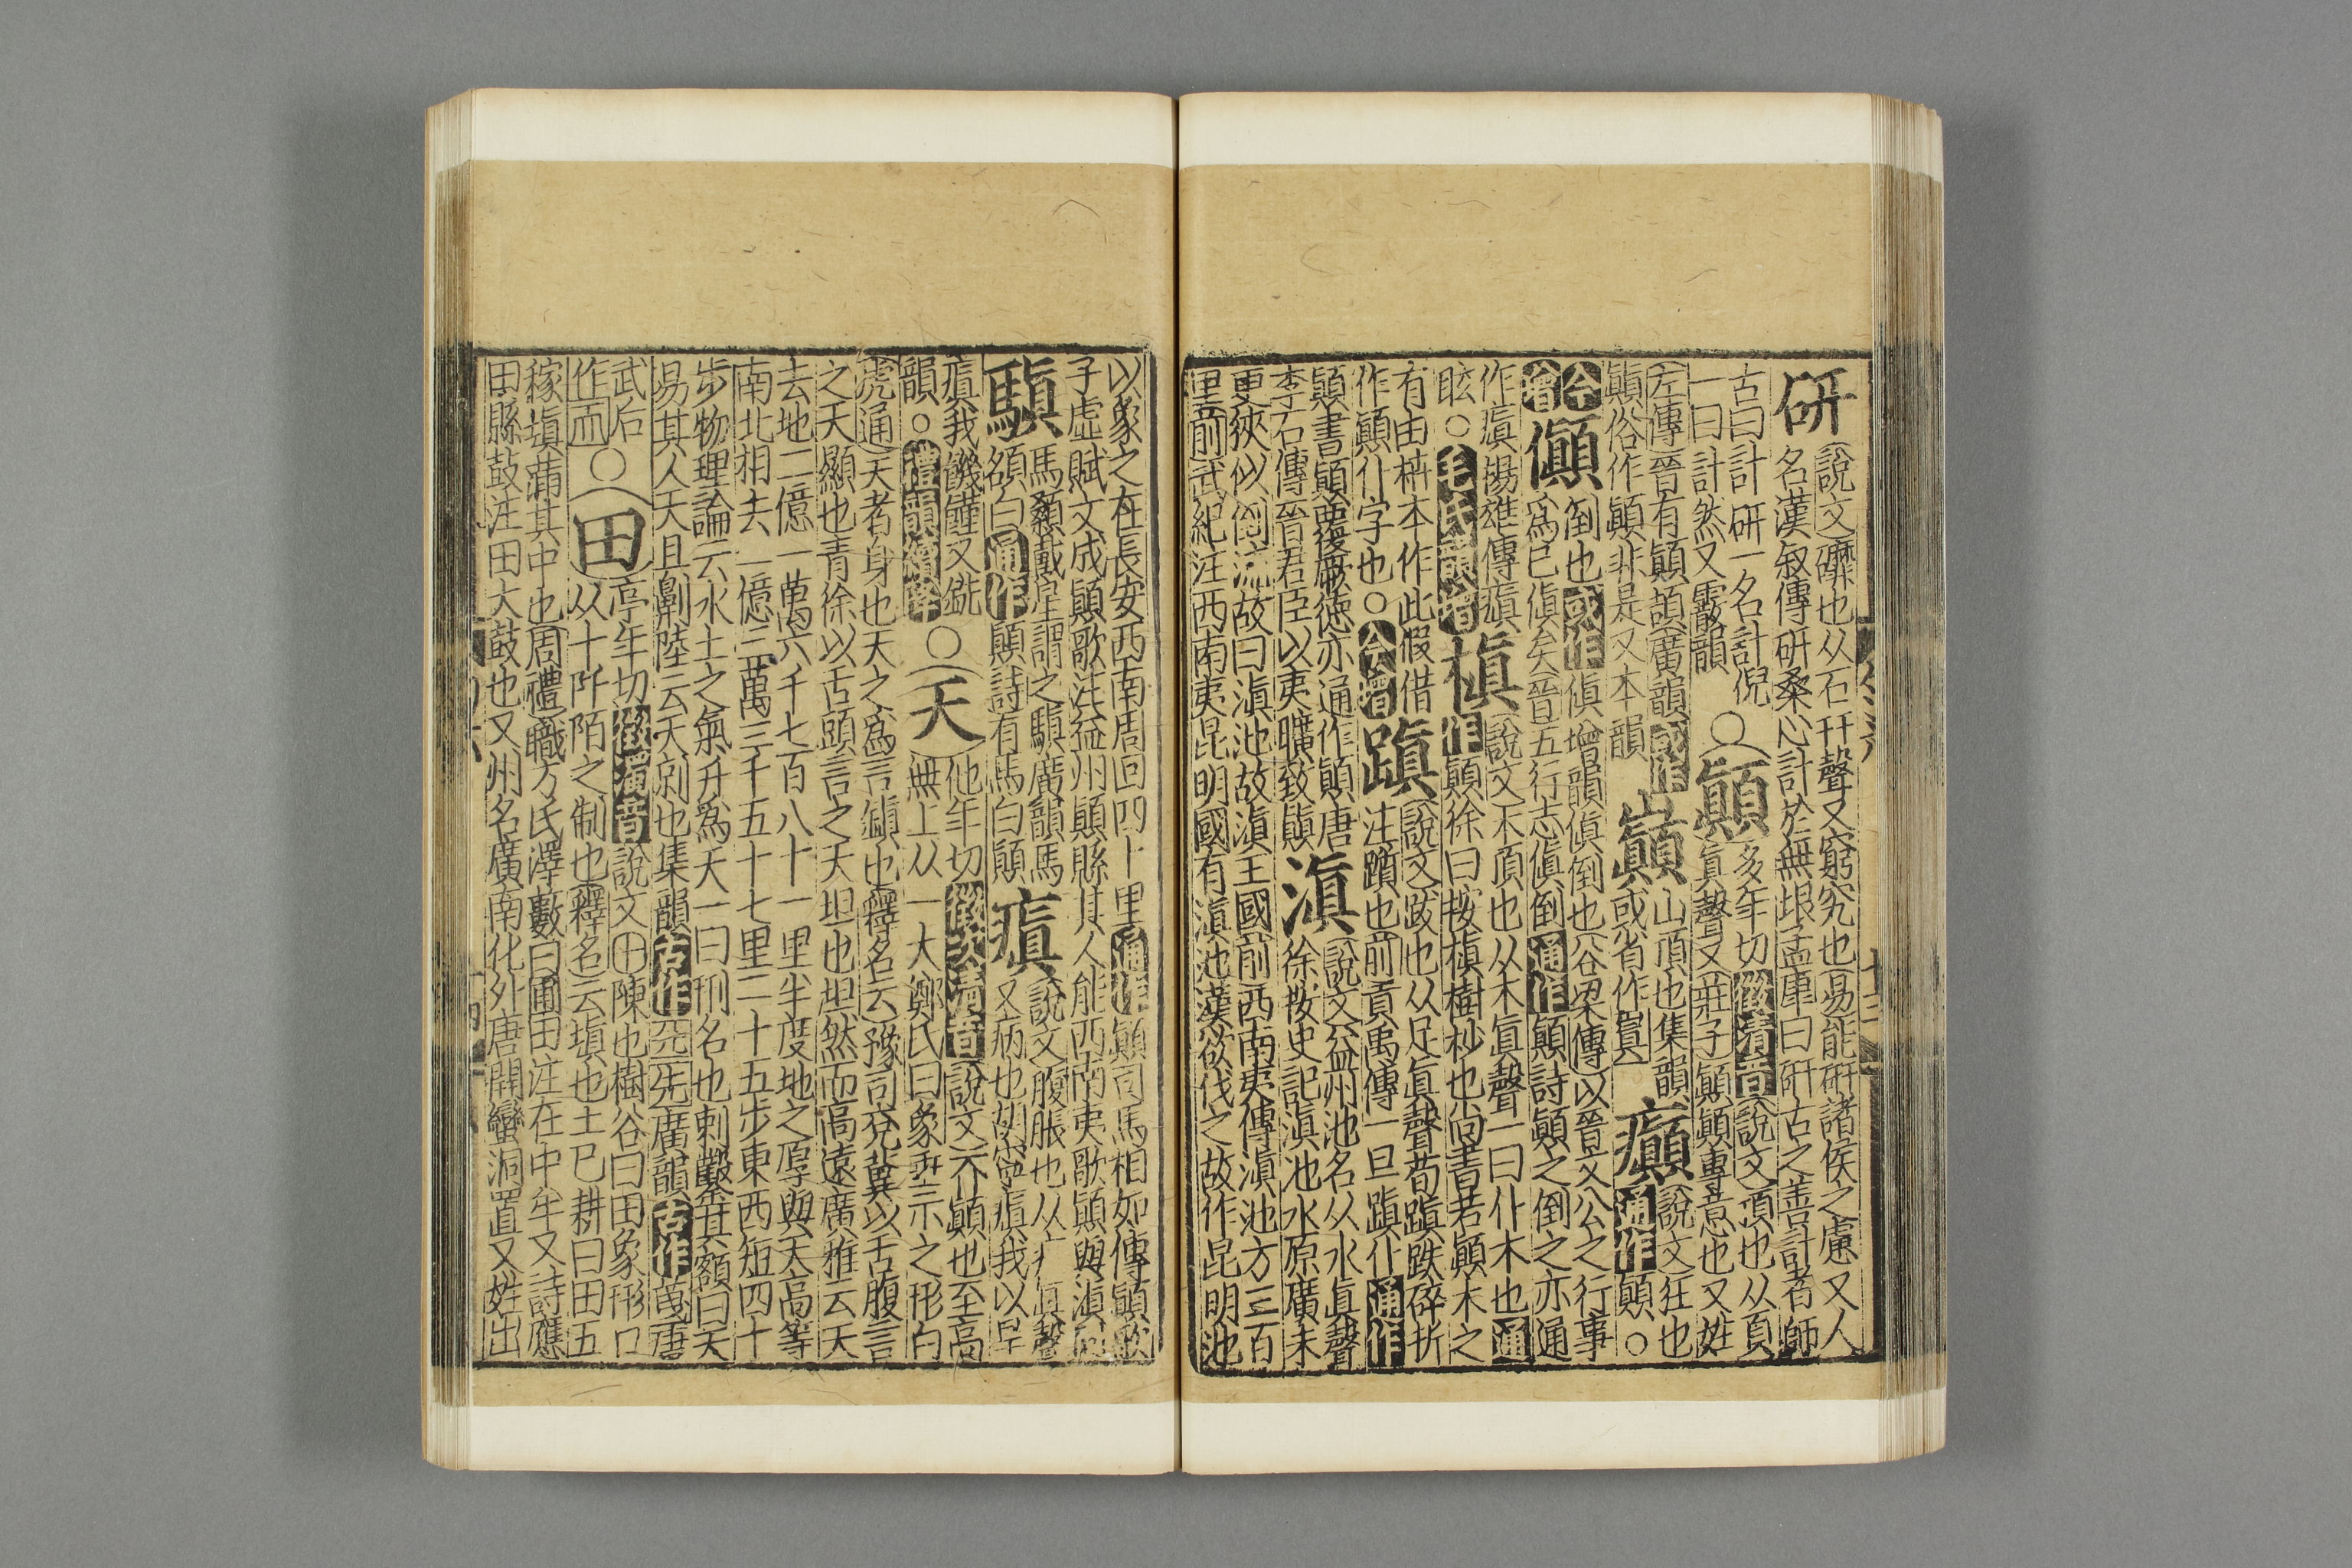 研
說文䃺也从石幵聲又窮究也易能研諸侯之慮又人
名漢叙傳研桑心計於無垠孟康曰研古之善計者師
古曰計研一名計倪
一曰計然又霰韻
○顚
多年切徵清音說文頂也从頁
眞聲又莊子顚顚專意也又姓
左傳晉有顚頡廣韻或作
顛俗作顛非是又本韻
巔
山頂也集韻
或省作
癲
說文狂也
通作顚○
今增
儎
倒也或作傎增韻傎倒也谷梁傳以晉文公之行事
爲已傎矣晉五行志傎倒通作顚詩顚之倒之亦通
作瘨揚雄傳瘨
眩○毛氏韻增
槙
說文木頂也从木眞聲一曰仆木也通
作顚徐曰按槙樹杪也尚書若顚木之
有由枿本作此假借
作顚仆字也○今增
蹎
說文跋也从足眞聲荀蹎跌碎折
注躓也前貢禹傳一旦蹎仆通作
顚書顚覆厥德亦通作顚唐
李石傳晉君臣以夷曠致顚
滇
說文益州池名从水眞聲
徐按史記滇池水原廣末
更狹似倒流故曰滇池故滇王國前西南夷傳滇池方三百
里前武紀注西南夷昆明國有滇池漢欲伐之故作昆明池
以象之在長安西南周回四十里通作顚司馬相如傳顚歌
子虛賦文成顚歌注益州顚縣其人能西南夷歌顚與滇同
驥
馬顙戴星謂之驥廣韻馬
額白通作顚詩有馬白顚
瘨
說文腹脹也从疒眞聲
又病也胡寧瘨我以旱
瘨我饑饉又銑
韻○禮韻續降
○天
他年切徵次清音說文天顚也至高
無上从一大鄭氏曰象垂示之形白
虎通天者身也天之爲言鎭也釋名云豫司兗冀以舌腹言
之天顯也青徐以舌頭言之天坦也坦然而高遠廣雅云天
去地二億一萬六千七百八十一里半度地之厚與天高等
南北相去二億三萬三千五十七里二十五步東西短四十
步物理論云水土之氣升爲天一曰刑名也剠鑿其額曰天
易其人天且劓陸云天剠也集韻古作兲廣韻古作𦮞唐
武后
作而
○田
亭年切徵濁音說文田陳也樹谷曰田象形口
从十阡陌之制也釋名云填也土已耕曰田五
稼填滿其中也周禮職方氏澤藪曰圃田注在中牟又詩應
田縣鼓注田大鼓也又州名廣南化外唐開蠻洞置又姓出